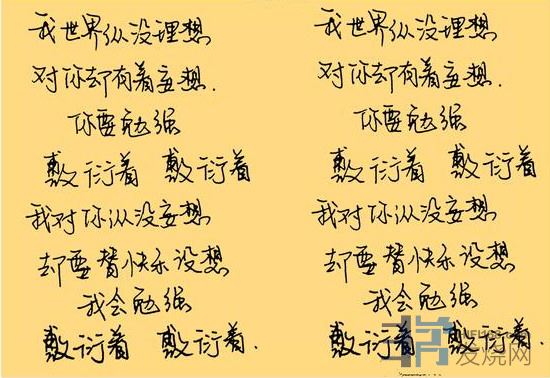 我世界从没理想
对你却有着妄想.
你要勉强
敷衍着 敷衍着
我对你从没妄想
却要替快乐设想
我会勉强
敷衍着 敷衍着.
我世界从没理想
对你却有着妄想.
你要勉强
敷衍着 敷衍着
我对你从没妄想
却要替快乐设想
我会勉强
敷衍着 敷衍着.
发烧网